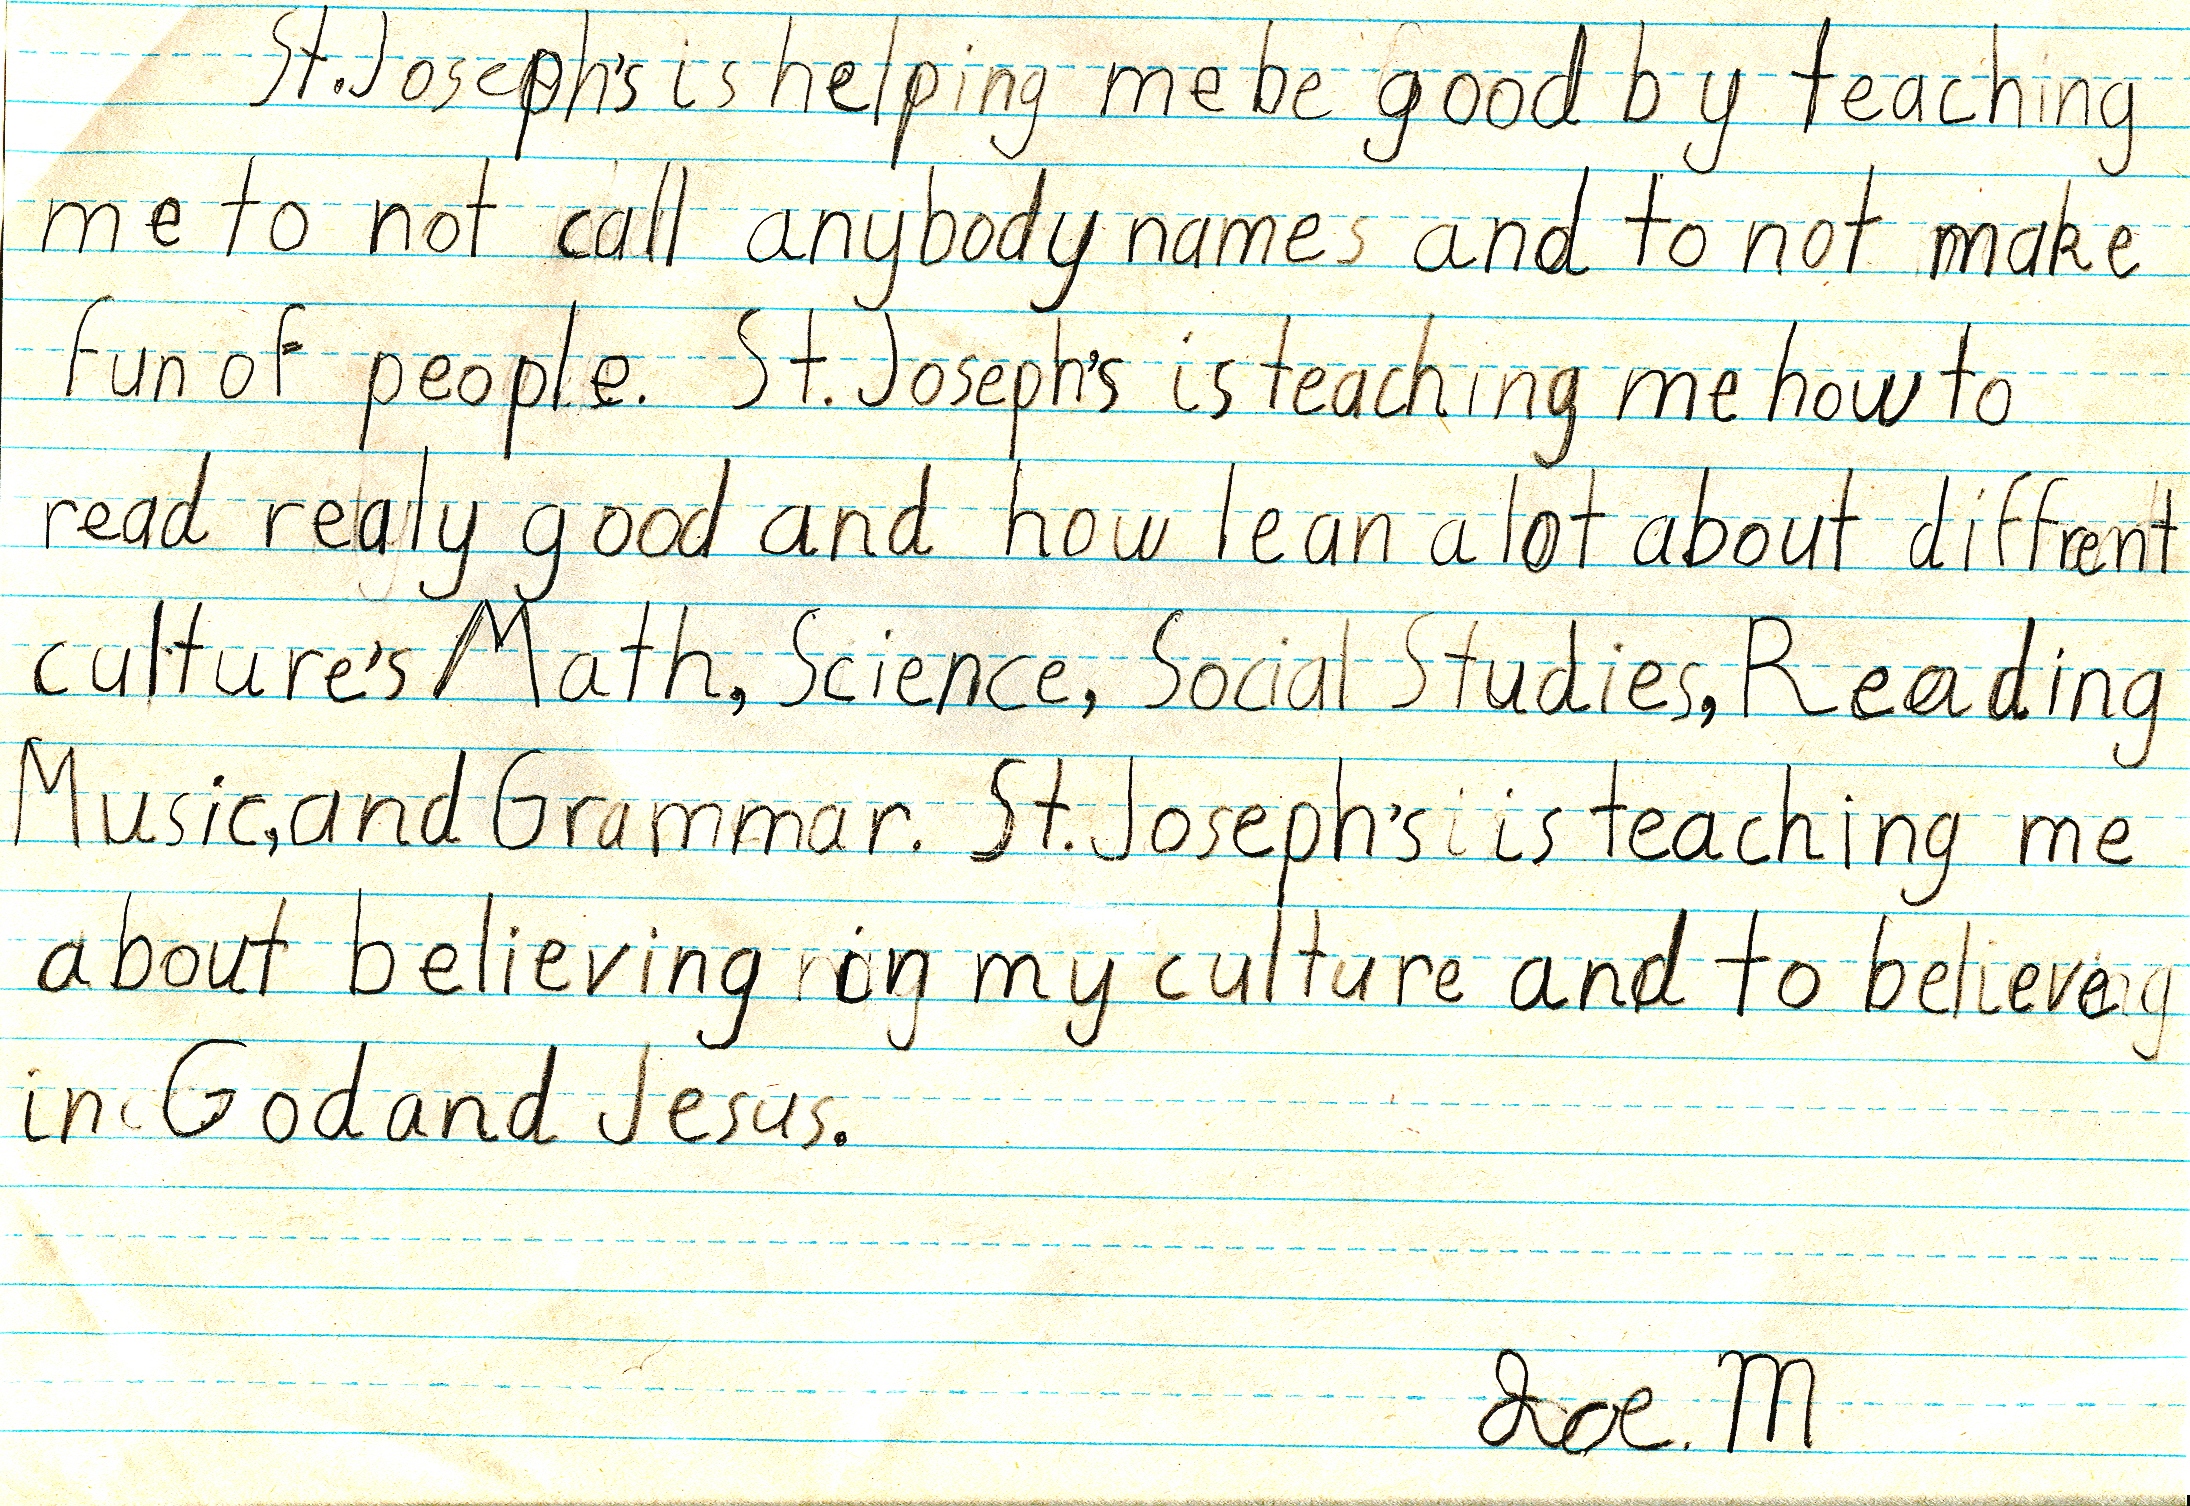 St. Joseph's is helping me be good by teaching
me to not call anybody names and to not make
fun of people. St. Joseph's is teaching me how to
read realy good and how lean a lot about diffrent
culture's Math, Science, Social Studies, Reading
Music, and Grammar. St. Joseph's is teaching me
about believing in my culture and to believe
in God and Jesus.
Joe. M